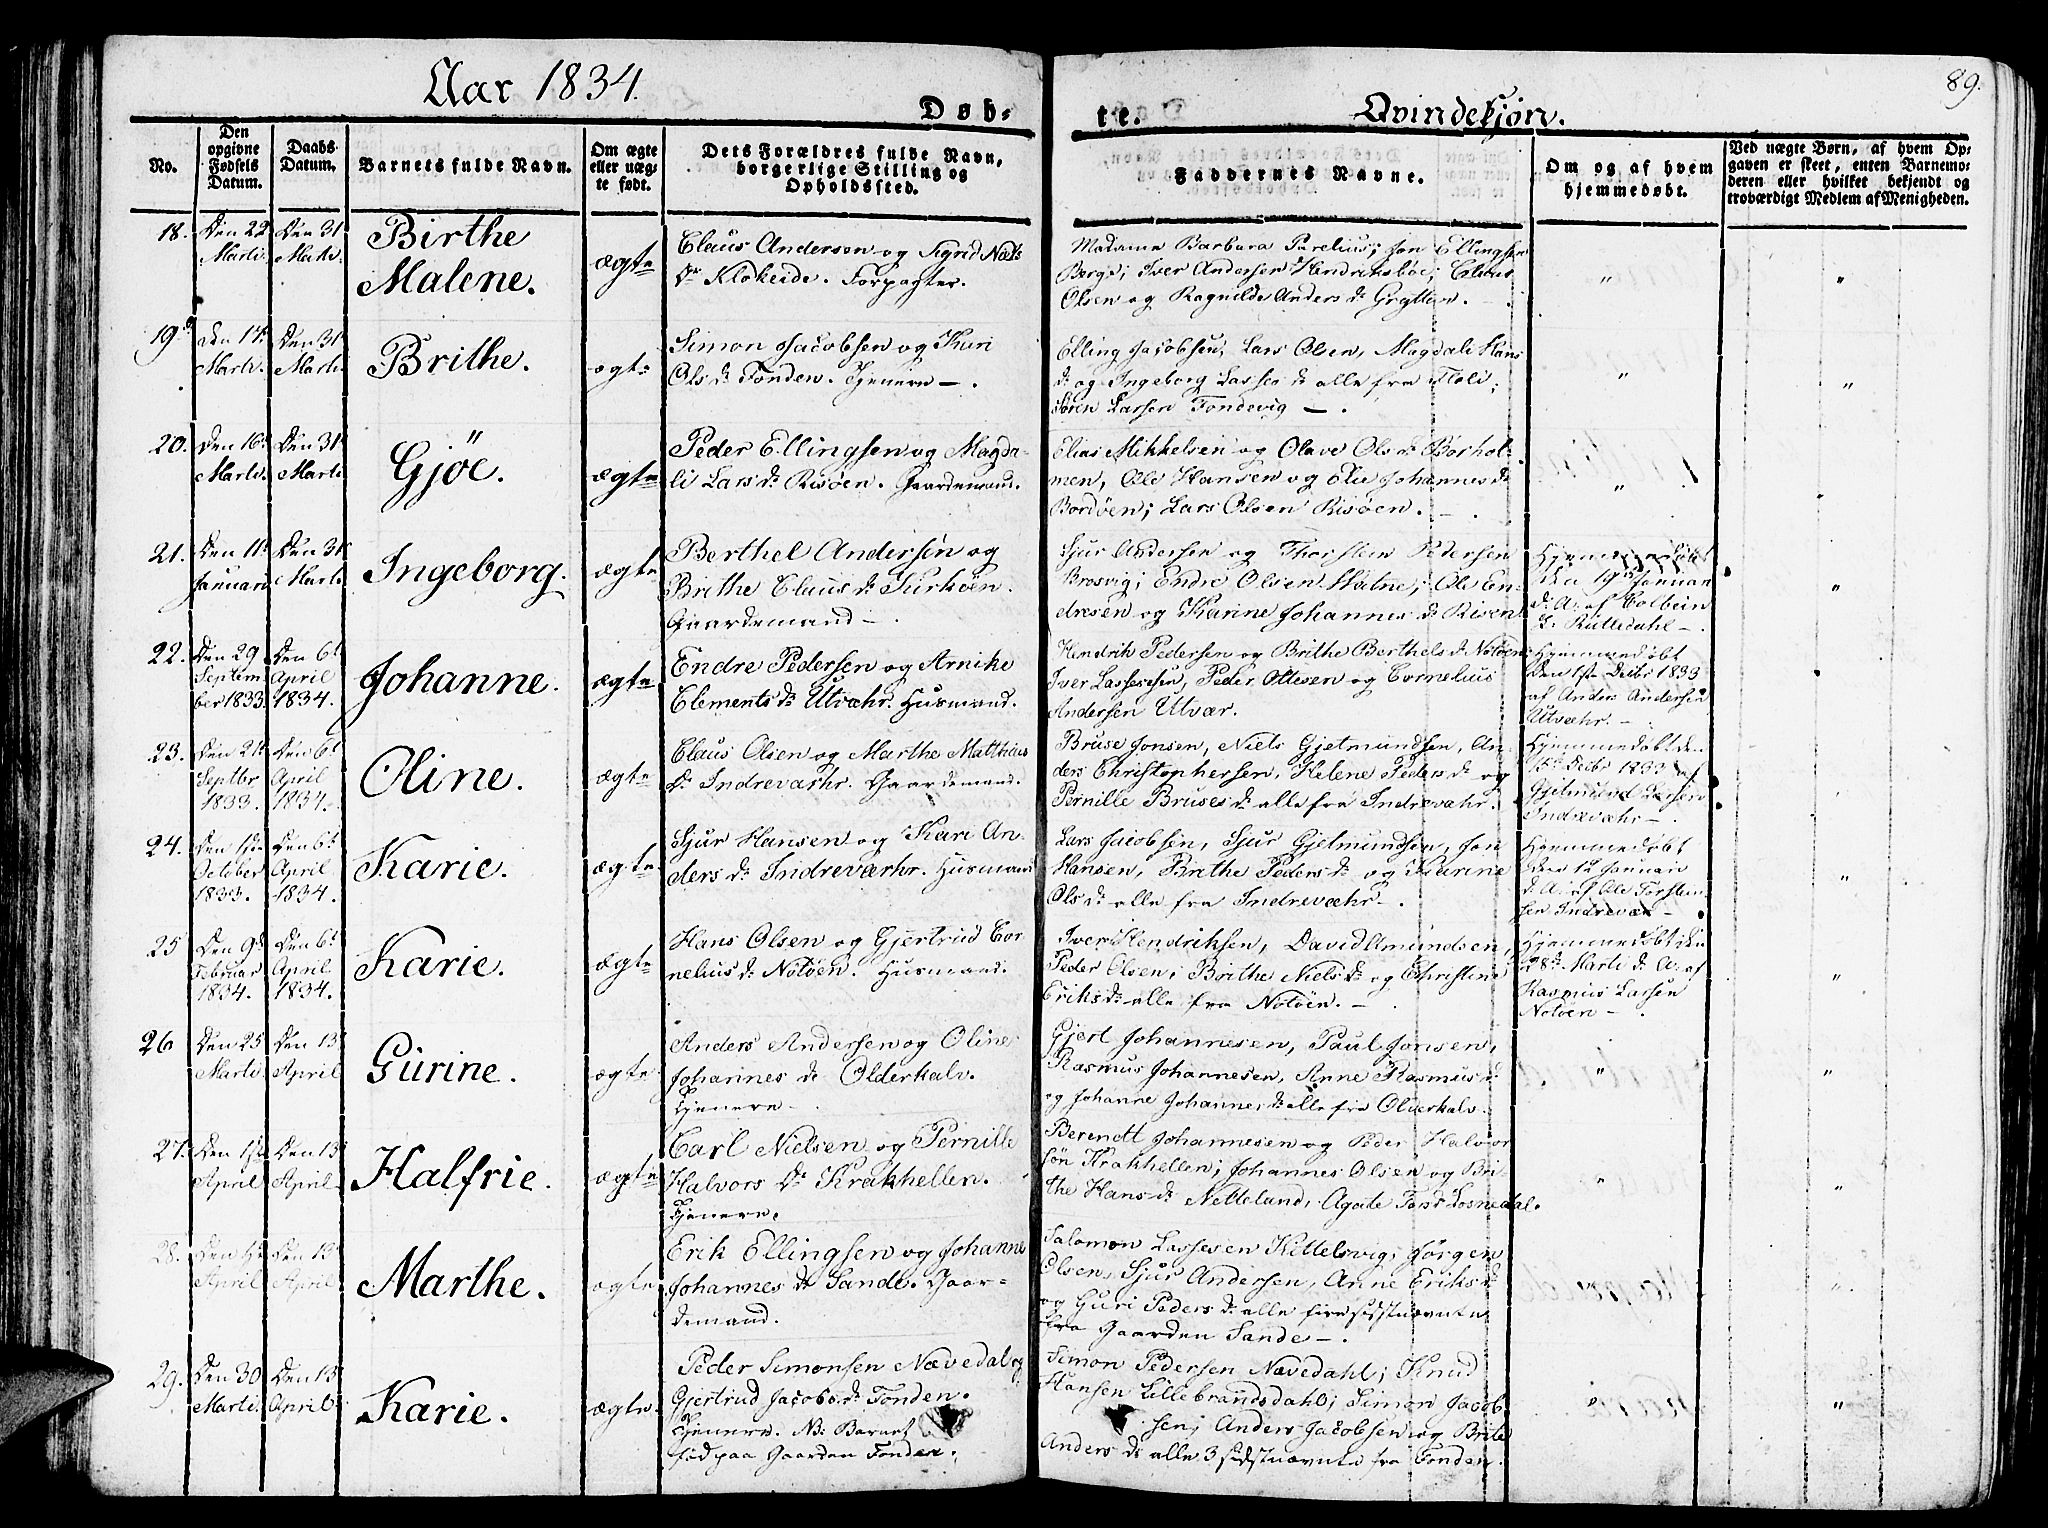 Aar 1834.
Døb-
te.
Qvindekjøn.
89.
No.
Den opgivne Fødsels Datum.
Daabs Datum.
Barnets fulde Navn.
Om ægte eller uægte født.
Dets Forældres fulde Navn, borgerlige Stilling og Opholdssted.
Faddernes Navne.
Om og af hvem hjemmedøbt.
Ved uægte Børn, af hvem Opgaven er skeet, enten Barnemoderen eller hvilket bekjendt og troværdigt Medlem af Menigheden.
18.
Den 22
Martii.
Den 31
Martii.
Birthe
Malene.
ægte
Claus Andersen og Sigrid Niels
Dr Klokeide. Forpagter.
Madame Barbara Parelius; Jon Ellingsen
Berge; Iver Andersen Hendriksbøe; Claus
Olsen og Ragnilde Anders Dr Grytten.
"
"
19.
Den 17
Martii.
Den 31
Martii
Brithe.
ægte
Simon Jacobsen og Kari
Ols Dr Fonden. Tjenere —.
Elling Jacobsen, Lars Olsen, Magdali Hans
Dr og Ingeborg Lasses Dr alle fra Floli;
Søren Larsen Fondevig —.
"
"
20.
Den 16
Martii.
Den 31
Martii
Gjöe.
ægte
Peder Ellingsen og Magda-
li Lars Dr Risöen. Gaardemand.
Elias Mikkelsen og Olave Ols Dr Børhol-
men, Ole Hansen og Elie Johannes Dr
Bordöen; Lars Olsen Risöen.
"
"
21.
Den 11
Januarii
Den 31
Martii
Ingeborg.
ægte
Berthel Andersen og
Brithe Claus Dr Surköen.
Gaardemand —.
Sjur Andersen og Thorstein Pedersen
Brosvig; Endre Olsen Hatne; Ole En-
dresen og Karine Johannes Dr Risen
Hjemmedøbt
Den 19 Januari
d. A. af Colbein
Rutledahl —.
"
22.
Den 29
Septem
ber 1833.
Den 6
April
1834.
Johanne.
ægte
Endre Pedersen og Arnike
Clements Dr Utvæhr. Husmand.
Hendrik Pedersen og Brithe Berthels Dr Notöen;
Iver Lassesen, Peder Ottesen og Cornelius
Andersen Utvær.
Hjemmedøbt
Den 1ste Decbr 1833
af Anders Andersen
Utvæhr. —
23.
Den 21
Septbr
1833.
Den 6
April
1834.
Oline.
ægte
Claus Olsen og Marthe Matthias
Dr Indreværhr. Gaardemand.
Bruse Jonsen, Niels Gjetmundsen, An-
ders Christophersen, Helene Peders Dr og
Pernille Bruses Dr alle fra Indrevæhr.
Hjemmedøbt den
15de Decbr 1833 af
Gjetmund Larsen
Indrevæhr —.
24.
October
1833.
Den 6
April
1834.
Karie.
ægte
Sjur Hansen og Kari An-
ders Dr Indreværhr. Husmand
Lars Jacobsen, Sjur Gjetmundsen, Jon
Hansen, Brithe Peders Dr og Karine
Ols Dr alle fra Indrevæhr —.
Hjemmedøbt
Den 12 Januari
d. A. af Ole Torsten-
sen Indrevær —
"
25
Den 9
Februar
1834.
Den 6
April
1834.
Karie.
ægte
Hans Olsen og Gjertrud Cor
nelius Dr Notöen. Husmand.
Iver Hendriksen, David Amundsen,
Peder Olsen, Brithe Niels Dr og Christine
Eriks Dr alle fra Notöen. —
Hjemmedøbt den
28de Martii d. A. af
Rasmus Larsen
Notöen —.
"
26
Den 25
Martii.
Den 13
April
Gurine.
ægte
Anders Andersen og Oline
Johannes Dr Olderkalv.
Tjenere —
Gjert Johannesen, Paul Jonsen,
Rasmus Johannesen, Anne Rasmus Dr
og Johanne Johannes Dr alle fra Olderkalv.
"
"
27.
April
Den 13
April
Halfrie.
ægte
Carl Nielsen og Pernille
Halvors Dr Krakhellen.
Tjenere.
Berendt Johannesen og Peder Halvor
sön Krakhellen; Johannes Olsen og Bri-
the Hans Dr Netteland; Agate Losnedal.
"
"
28.
April
Den 13
April.
Marthe.
ægte
Erik Ellingsen og Johanne
Johannes Dr Sande. Gaar-
demand.
Salomon Lassesen Kittelsvig; Jørgen
Olsen, Sjur Andersen, Anne Eriks Dr
og Guri Peders Dr alle fire sidstnævnte
fra Gaarden Sande —.
"
29.
Den 30
Martii.
Den 13
April
Karie.
ægte.
Peder Simonsen Nævedal og
Gjertrud Jacobs Dr Fonden.
Tjenere. NB: Barnet
fød paa Gaarden Fonden.
Simon Pedersen Nævedahl; Knud
Hansen Lillebrandsdahl; Simon Jacob-
sen; Anders Jacobsen og Brite
Anders Dr alle 3 sidstnævnte fra Fonden.
"
"